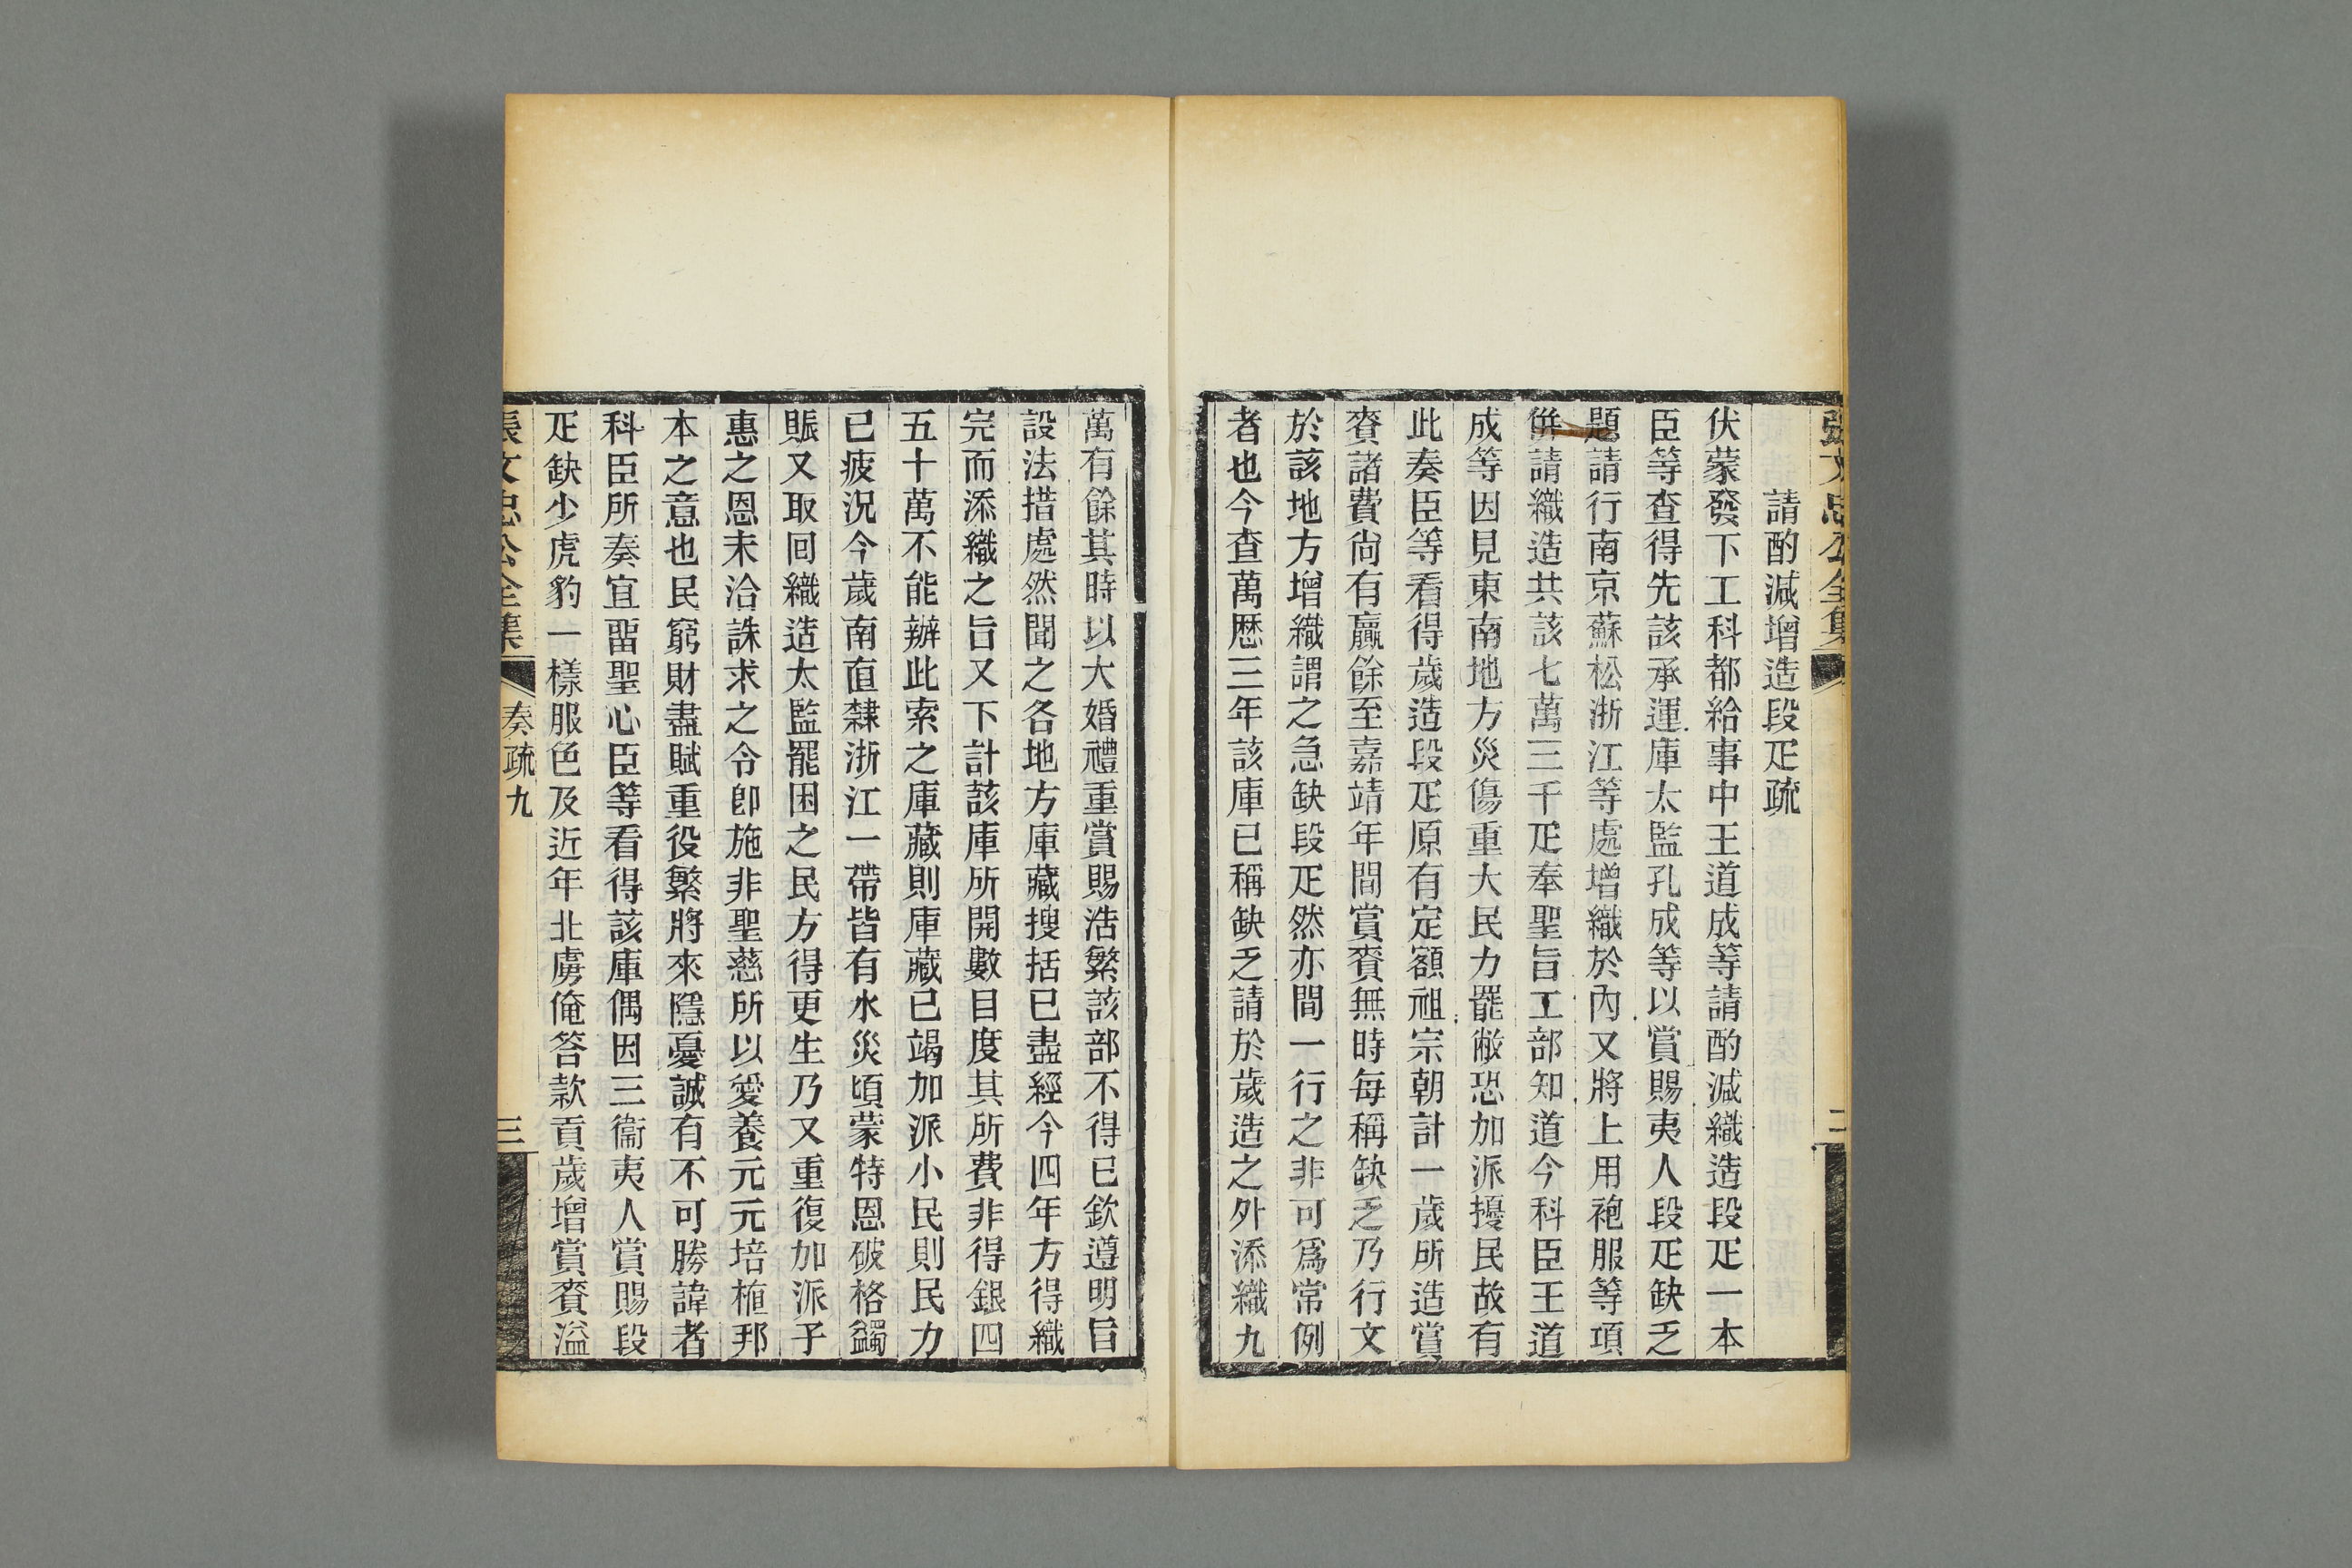 張文忠公全集
二
請酌減增造段疋疏
伏蒙發下工科都給事中王道成等請酌減織造段疋一本
臣等查得先該承運庫太監孔成等以賞賜夷人段疋缺乏
題請行南京蘇松浙江等處增織於內又將上用袍服等項
併請織造共該七萬三千疋奉聖旨工部知道今科臣王道
成等因見東南地方災傷重大民力罷敝恐加派擾民故有
此奏臣等看得歲造段疋原有定額祖宗朝計一歲所造賞
賚諸費尙有贏餘至嘉靖年間賞賚無時每稱缺乏乃行文
於該地方增織謂之急缺段疋然亦間一行之非可爲常例
者也今查萬歷三年該庫已稱缺乏請於歲造之外添織九
萬有餘其時以大婚禮重賞賜浩繁該部不得已欽遵明旨
設法措處然聞之各地方庫藏搜括已盡經今四年方得織
完而添織之旨又下計該庫所開數目度其所費非得銀四
五十萬不能辦此索之庫藏則庫藏已竭加派小民則民力
已疲況今歲南直隸浙江一帶皆有水災頃蒙特恩破格蠲
賑又取回織造太監罷困之民方得更生乃又重復加派子
惠之恩未洽誅求之令卽施非聖慈所以愛養元元培植邦
本之意也民窮財盡賦重役繁將來隱憂誠有不可勝諱者
科臣所奏宜畱聖心臣等看得該庫偶因三衞夷人賞賜段
疋缺少虎豹一樣服色及近年北虜俺答款貢歲增賞賚溢
張文忠公全集
奏疏九
三